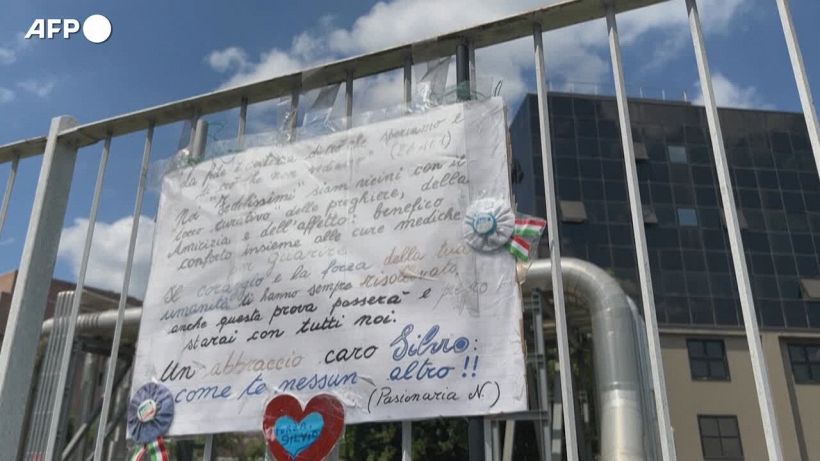 AFP
La fede è certezza di ciò che speriamo e
di ciò che non vediamo" (EBREI)
Noi "Fedelissimi" siam vicini con il
fuoco curativo delle preghiere, della
Amicizia e dell'affetto: benefico
conforto insieme alle cure mediche
per guarire.
Il coraggio e la forza della tua
umanità ti hanno sempre risollevato,
anche questa prova passerà e presto
starai con tutti noi.
Un abbraccio caro Silvio:
come te nessun altro!!
(Pasionaria N.)
FORZA
SILVIO